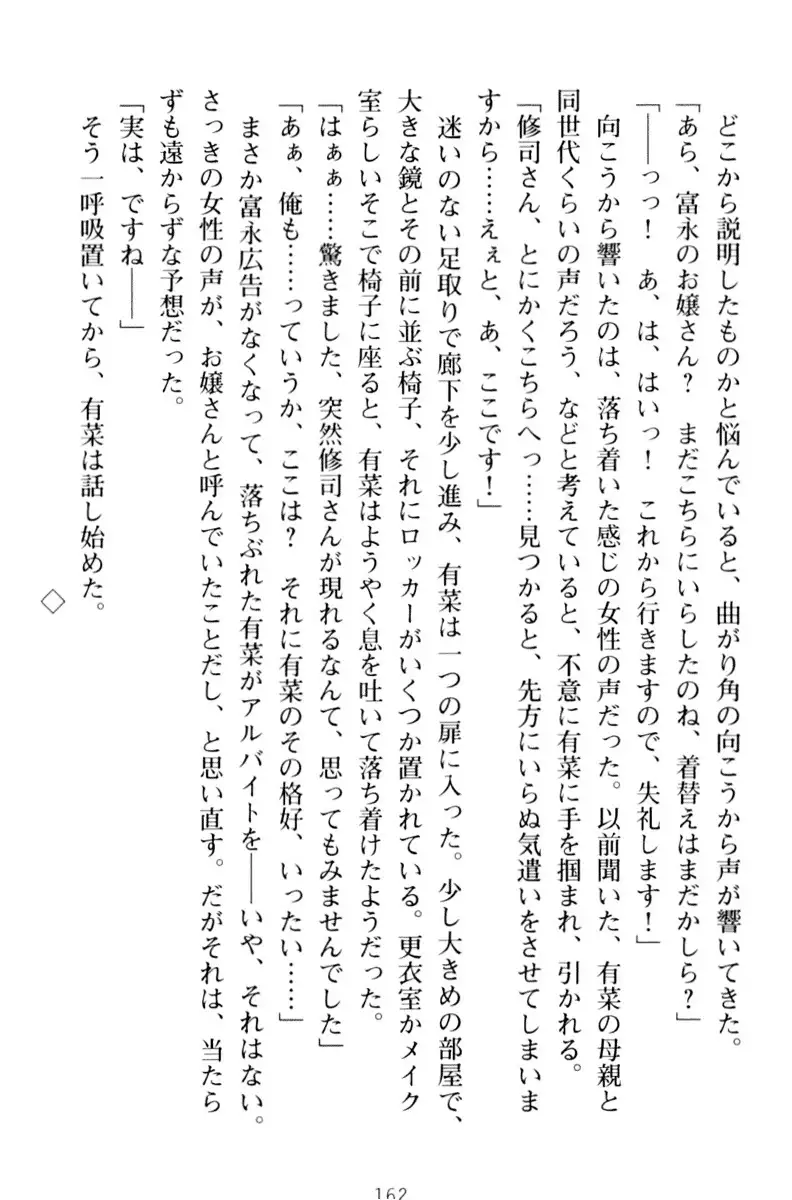 どこから説明したものかと悩んでいると、曲がり角の向こうから声が響いてきた。
「あら、富永のお嬢さん？　まだこちらにいらしたのね、着替えはまだかしら？」
「――っっ！　あ、は、はいっ！　これから行きますので、失礼します！」
向こうから響いたのは、落ち着いた感じの女性の声だった。以前聞いた、有菜の母親と
同世代くらいの声だろう、などと考えていると、不意に有菜に手を掴まれ、引かれる。
「修司さん、とにかくこちらへっ……見つかると、先方にいらぬ気遣いをさせてしまいま
すから……えぇと、あ、ここです！」
迷いのない足取りで廊下を少し進み、有菜は一つの扉に入った。少し大きめの部屋で、
大きな鏡とその前に並ぶ椅子、それにロッカーがいくつか置かれている。更衣室かメイク
室らしいそこで椅子に座ると、有菜はようやく息を吐いて落ち着けたようだった。
「はぁぁ……驚きました、突然修司さんが現れるなんて、思ってもみませんでした」
「あぁ、俺も……っていうか、ここは？　それに有菜のその格好、いったい……」
まさか富永広告がなくなって、落ちぶれた有菜がアルバイトを――いや、それはない。
さっきの女性の声が、お嬢さんと呼んでいたことだし、と思い直す。だがそれは、当たら
ずも遠からずな予想だった。
「実は、ですね――」
そう一呼吸置いてから、有菜は話し始めた。
◇
162